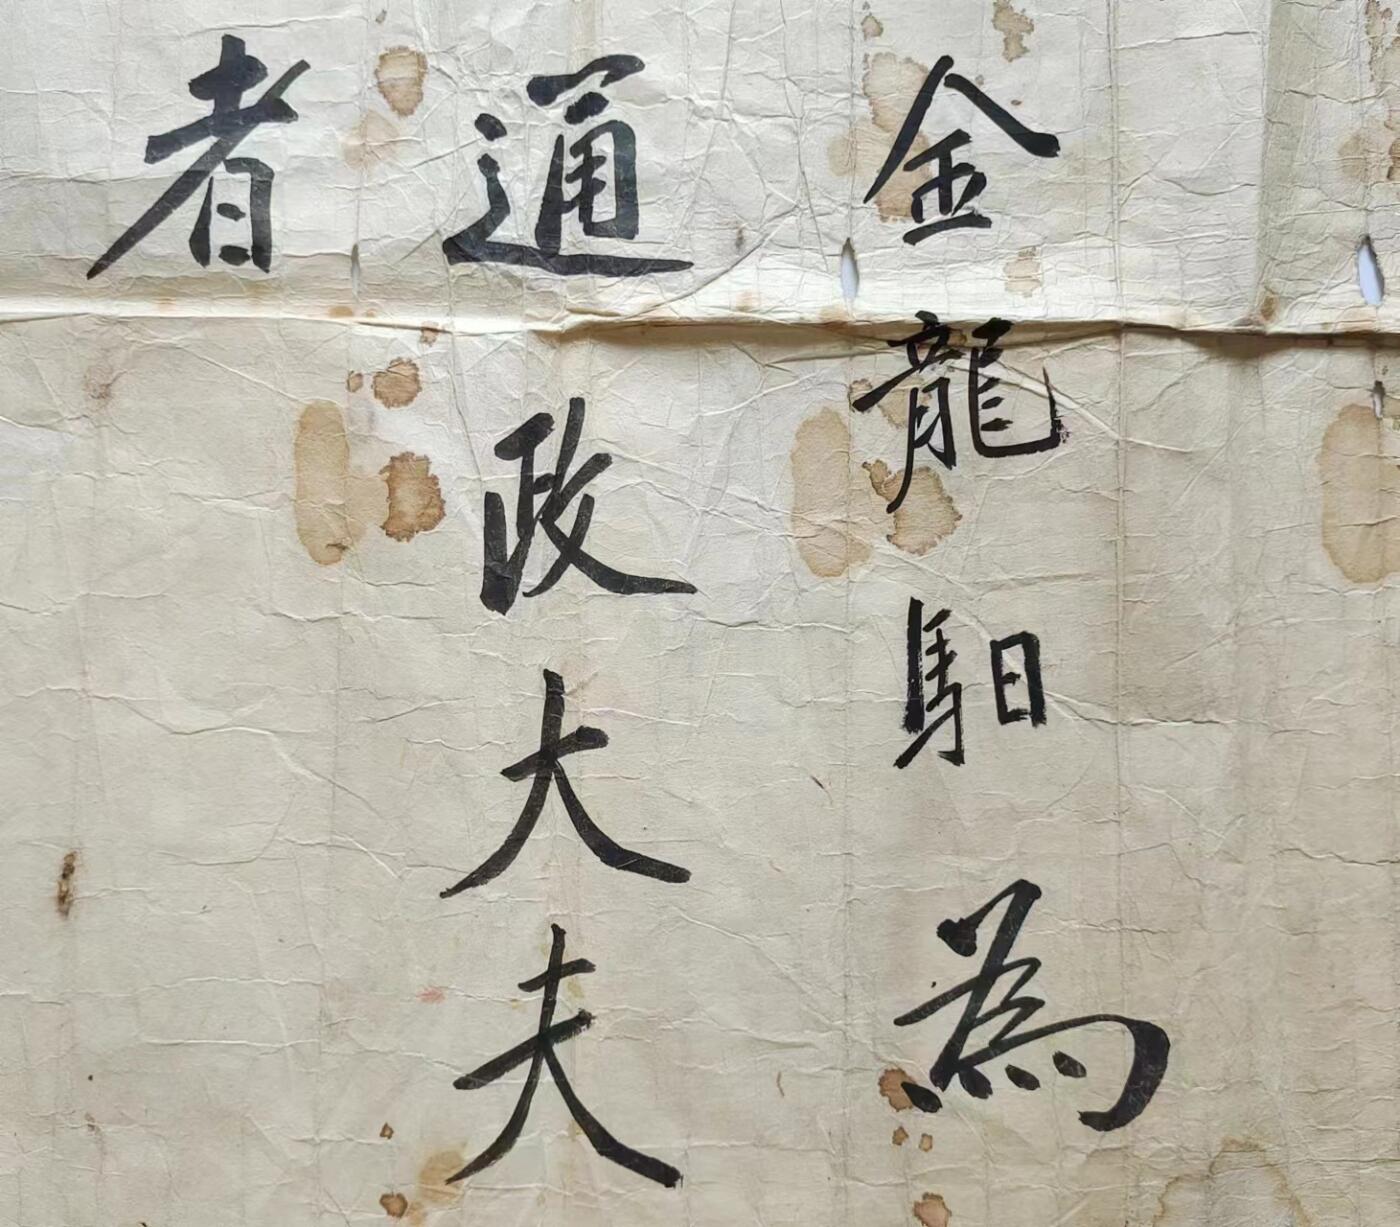 金龍馹為
通政大夫
者